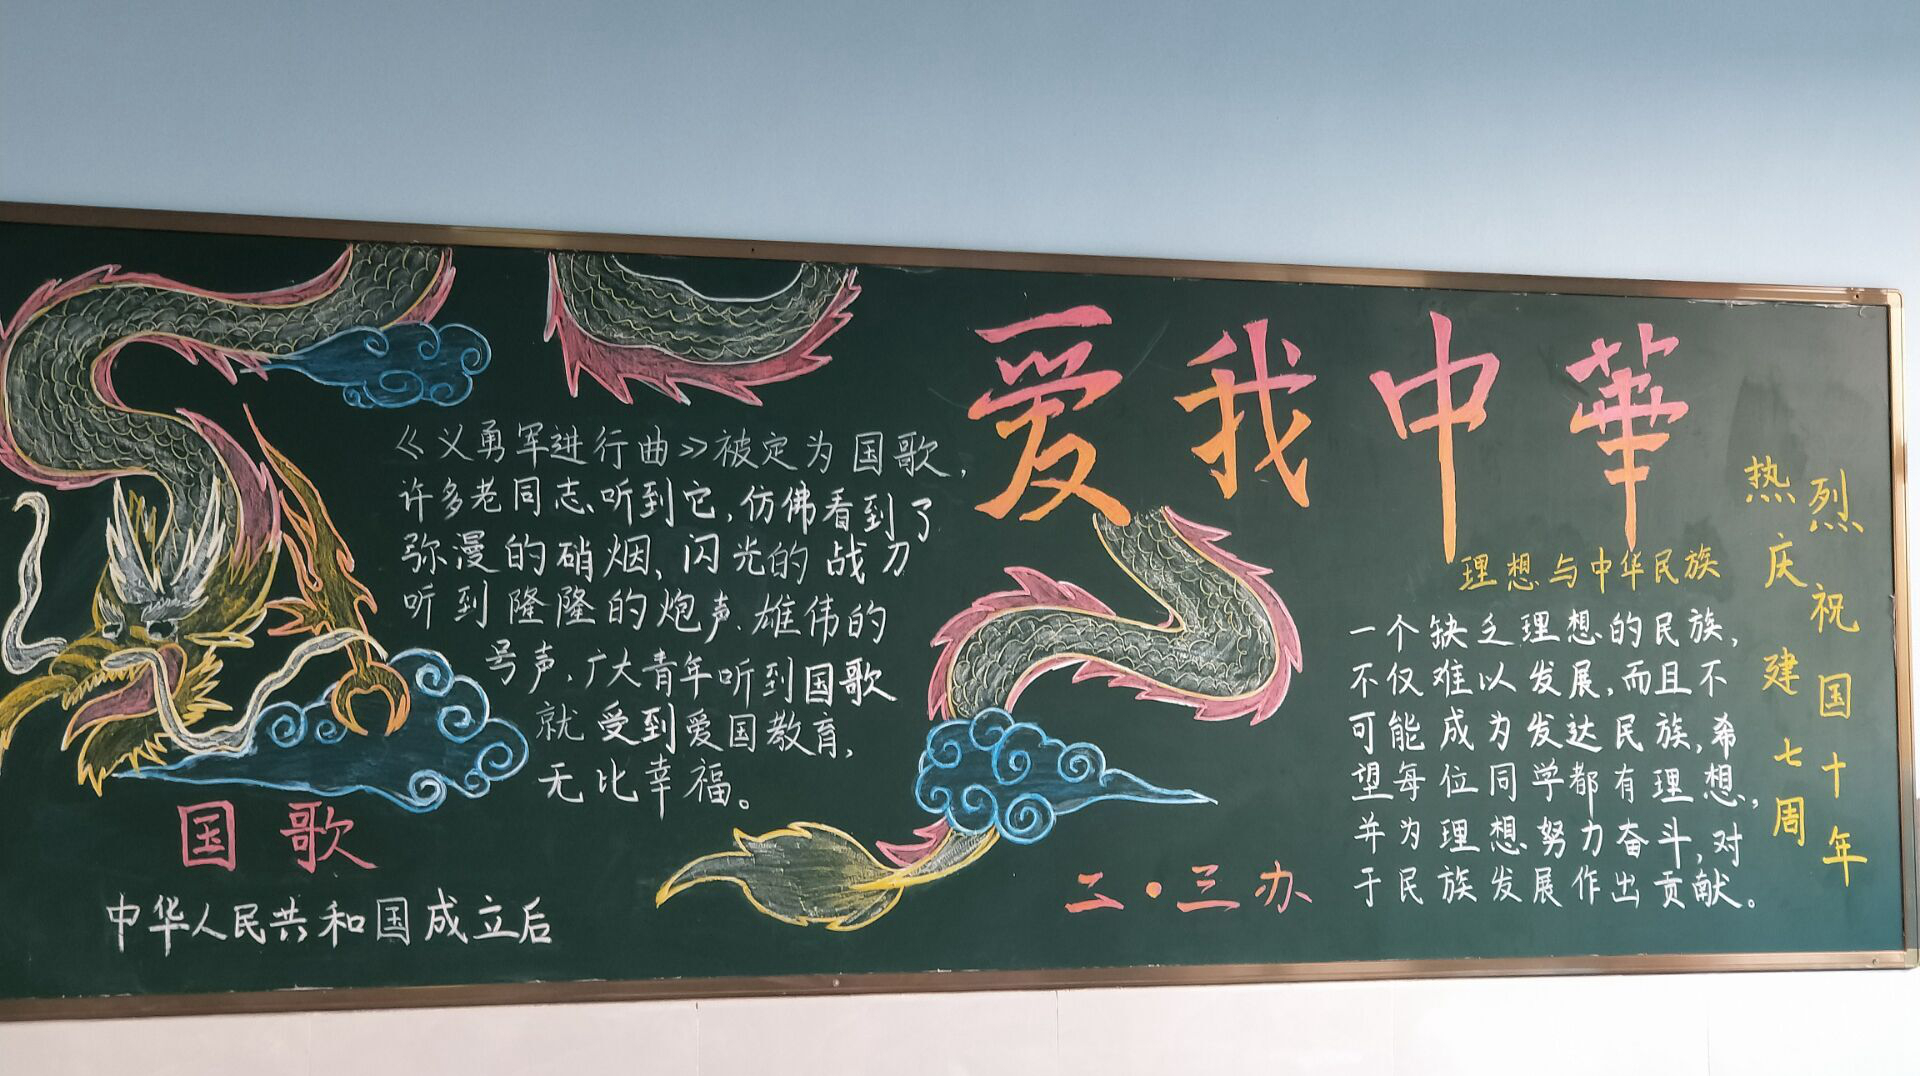 爱我中華
国歌
中华人民共和国成立后
《义勇军进行曲》被定为国歌，
许多老同志听到它，仿佛看到了
弥漫的硝烟、闪光的战刀
听到隆隆的炮声、雄伟的
号声，广大青年听到国歌
就受到爱国教育，
无比幸福。
二·三办
理想与中华民族
一个缺乏理想的民族，
不仅难以发展，而且不
可能成为发达民族，希
望每位同学都有理想，
并为理想努力奋斗，对
于民族发展作出贡献。
热烈
庆祝
建国
七十
周年